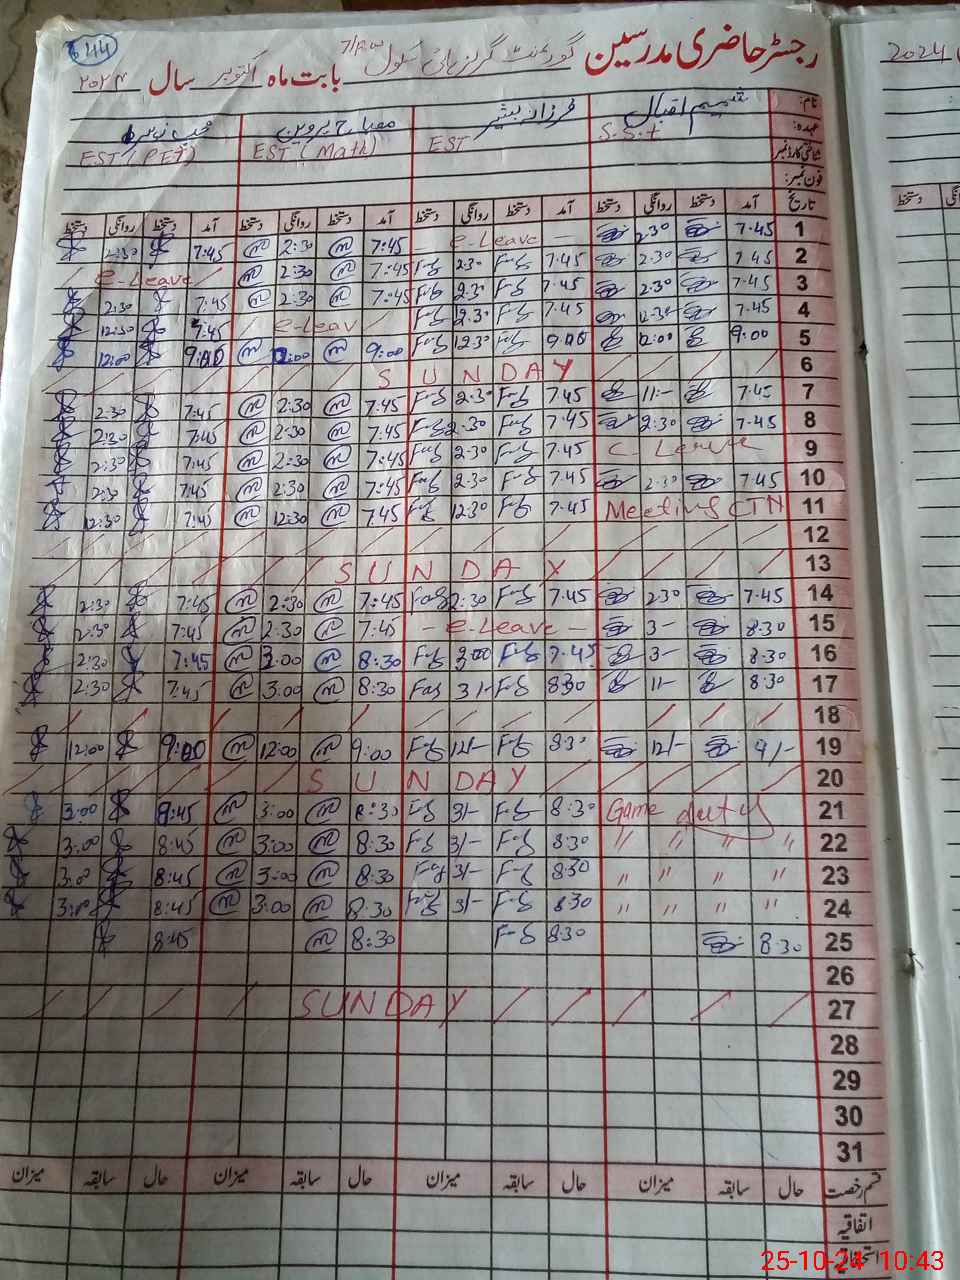 44
رجسٹر حاضری مدرسین گورنمنٹ گرلز ہائی سکول 7/A.W بابت ماہ اکتوبر سال ۲۰۲۴
2024
نام: شمیم اقبال فرزانہ بشیر مصباح پروین
عہدہ: S.S.t EST EST (Math) EST (PET)
شناختی کارڈ نمبر
فون نمبر:
تاریخ آمد دستخط روانگی دستخط آمد دستخط روانگی دستخط آمد دستخط روانگی دستخط آمد دستخط روانگی دستخط
1 7.45 2.30 e-Leave 7:45 2:30 7:45 2:30
2 7.45 2.30 7.45 2.30 7:45 2:30 e-Leave
3 7.45 2.30 7.45 2.30 7:45 2:30 7:45 2:30
4 7.45 12.30 7.45 12.30 e-Leav 7:45 12:30
5 9:00 12:00 9:00 12.30 9:00 12:00 9:00 12:00
6 SUNDAY
7 7.45 11:- 7.45 2.30 7.45 2:30 7:45 2:30
8 7.45 2.30 7.45 2.30 7.45 2:30 7:45 2:30
9 C. Leave 7.45 2.30 7:45 2:30 7:45 2:30
10 7.45 2.30 7.45 2.30 7:45 2:30 7:45 2:30
11 Meeting CTN 7.45 12.30 7.45 12:30 7:45 12:30
12
13 SUNDAY
14 7.45 2.30 7.45 2.30 7:45 2:30 7:45 2:30
15 8.30 3- - e-Leave - 7:45 2:30 7:45 2:30
16 8.30 3- 7.45 3:00 8:30 3:00 7:45 2:30
17 8:30 11- 8:30 3/- 8:30 3:00 7:45 2:30
18
19 9/- 12/- 8.30 12/- 9:00 12:00 9:00 12:00
20 SUNDAY
21 Game duty 8:30 3/- 8:30 3:00 8:45 3:00
22 " " " " 8:30 3/- 8:30 3:00 8:45 3:00
23 " " " " 8:30 3/- 8:30 3:00 8:45 3:00
24 " " " " 8:30 3/- 8:30 3:00 8:45 3:00
25 8:30 8:30 8:30 8:45
26
27 SUNDAY
28
29
30
31
قسم رخصت حال سابقہ میزان حال سابقہ میزان حال سابقہ میزان حال سابقہ میزان
اتفاقیہ
استحقاقیہ
25-10-24 10:43